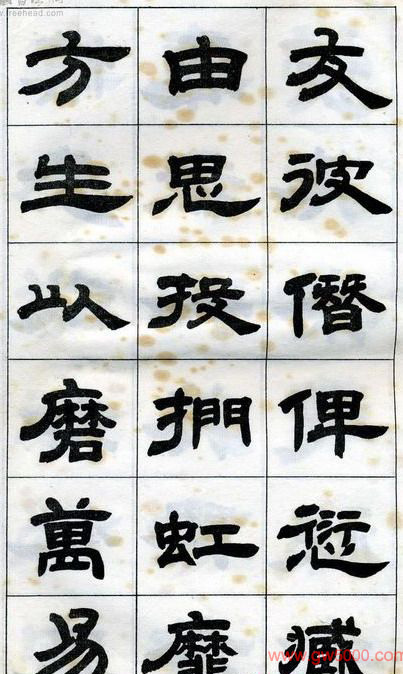 友彼僭俾愆臧
由思投捫虹靡
方生以磨萬易
www.freehead.com
www.gw5000.com